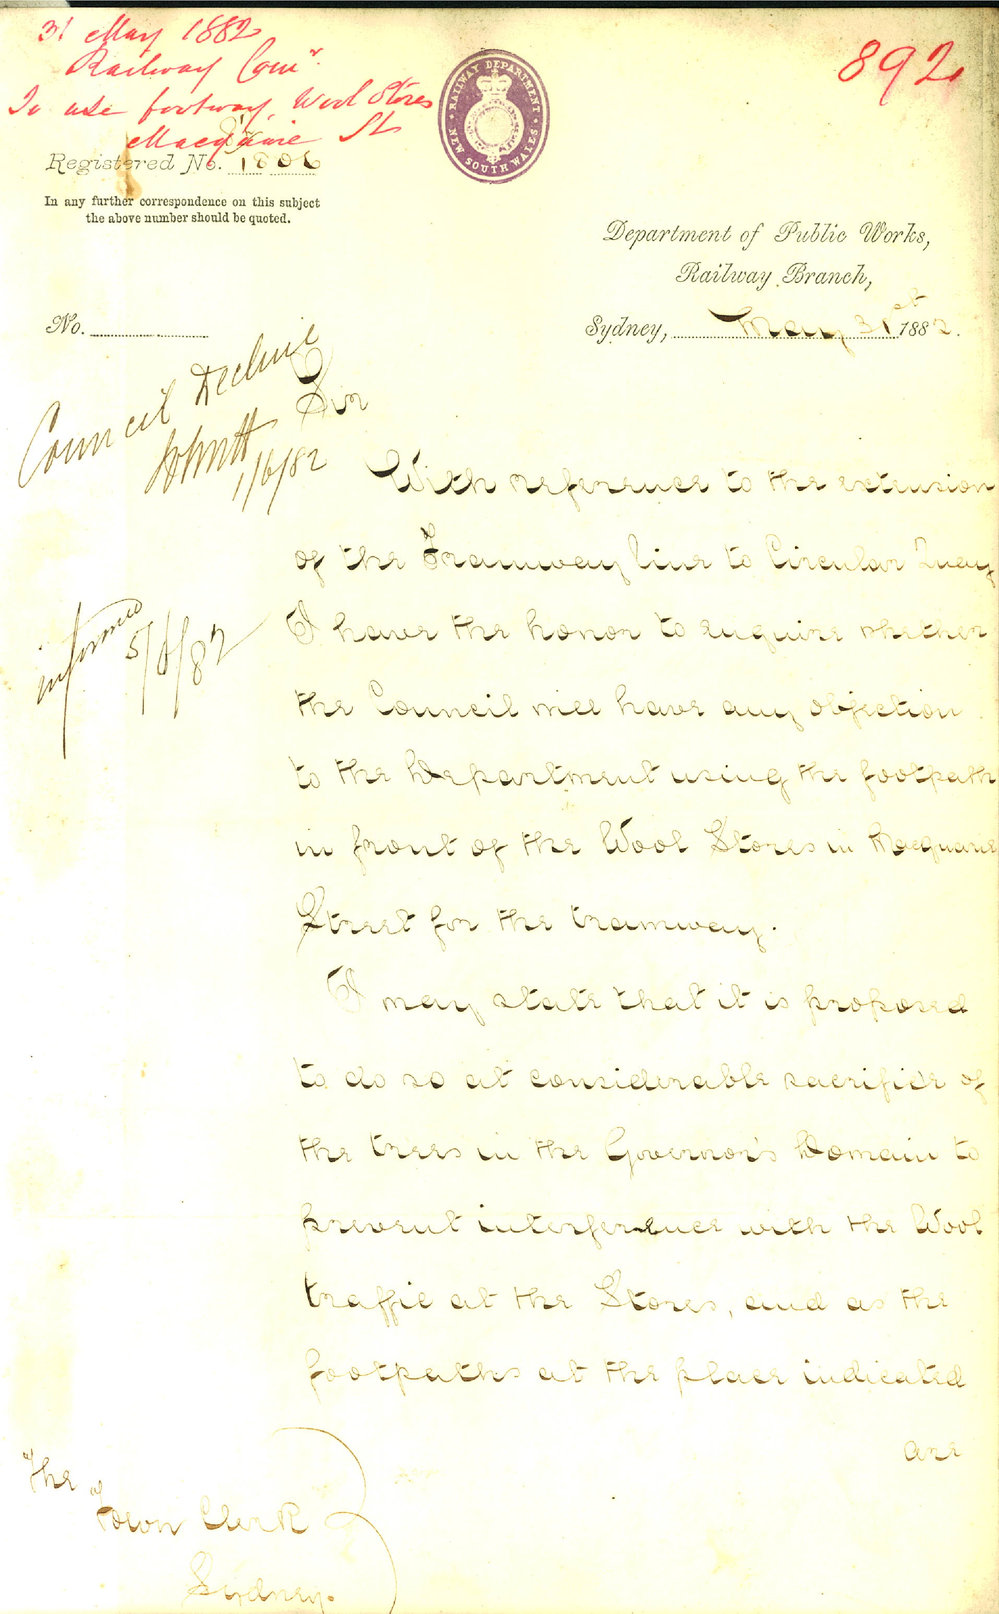 31 May 1882
Railway Comr
To use footway, Wool Stores
Macquarie St
892
RAILWAY DEPARTMENT
NEW SOUTH WALES
Registered No. 1806
In any further correspondence on this subject
the above number should be quoted.
Department of Public Works,
Railway Branch,
No.
Sydney, May 31st 1882.
Council Decline
1/6/82
informed
5/6/82
Sir
With reference to the extension
of the Tramway line to Circular Quay
I have the honor to enquire whether
the Council will have any objection
to the Department using the footpath
in front of the Wool Stores in Macquarie
Street for the tramway.
I may state that it is proposed
to do so at considerable sacrifice of
the trees in the Governor's Domain to
prevent interference with the Wool
traffic at the Stores, and as the
footpaths at the place indicated
are
The
Town Clerk
Sydney.